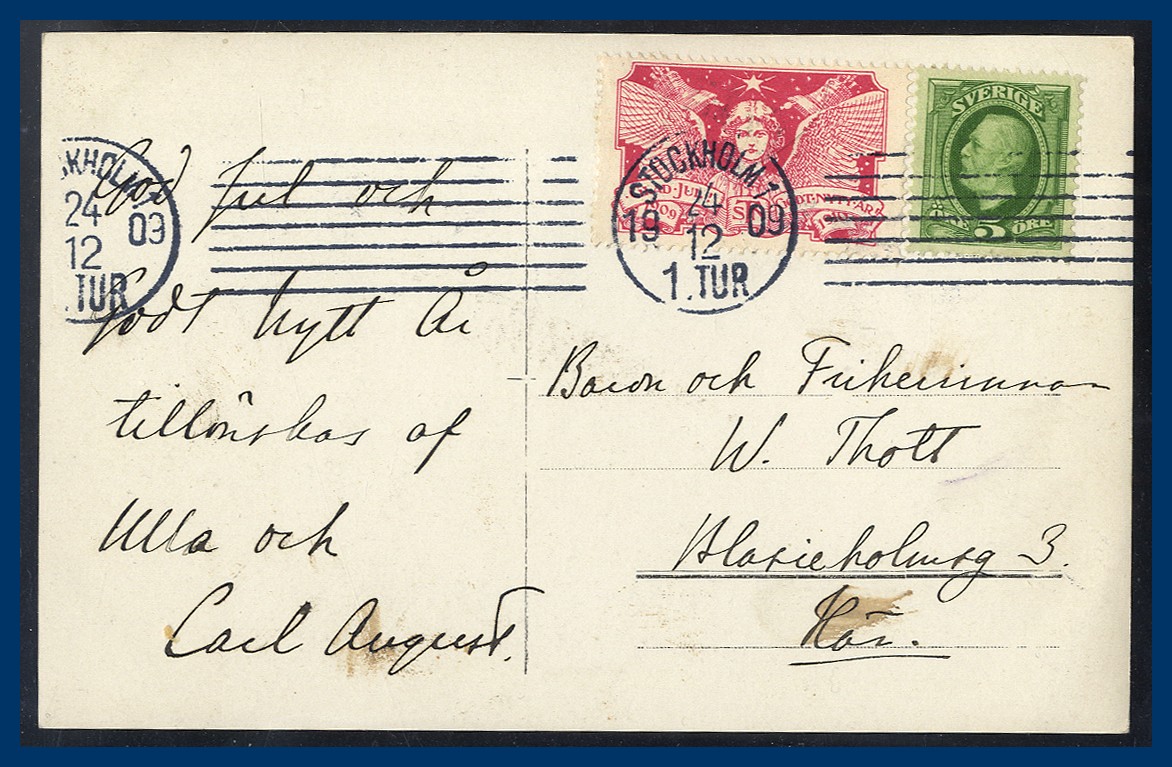 God Jul och
Godt Nytt År
tillönskas af
Ulla och
Carl August.
STOCKHOLM 1
19 24 09
12
1. TUR
KHOLM
24 09
12
1. TUR
GOD JUL
GODT NYTT ÅR
1909
SVERIGE
5 ÖRE
Baron och Friherrinnan
W. Thott
Blasieholmsg 3.
Här.